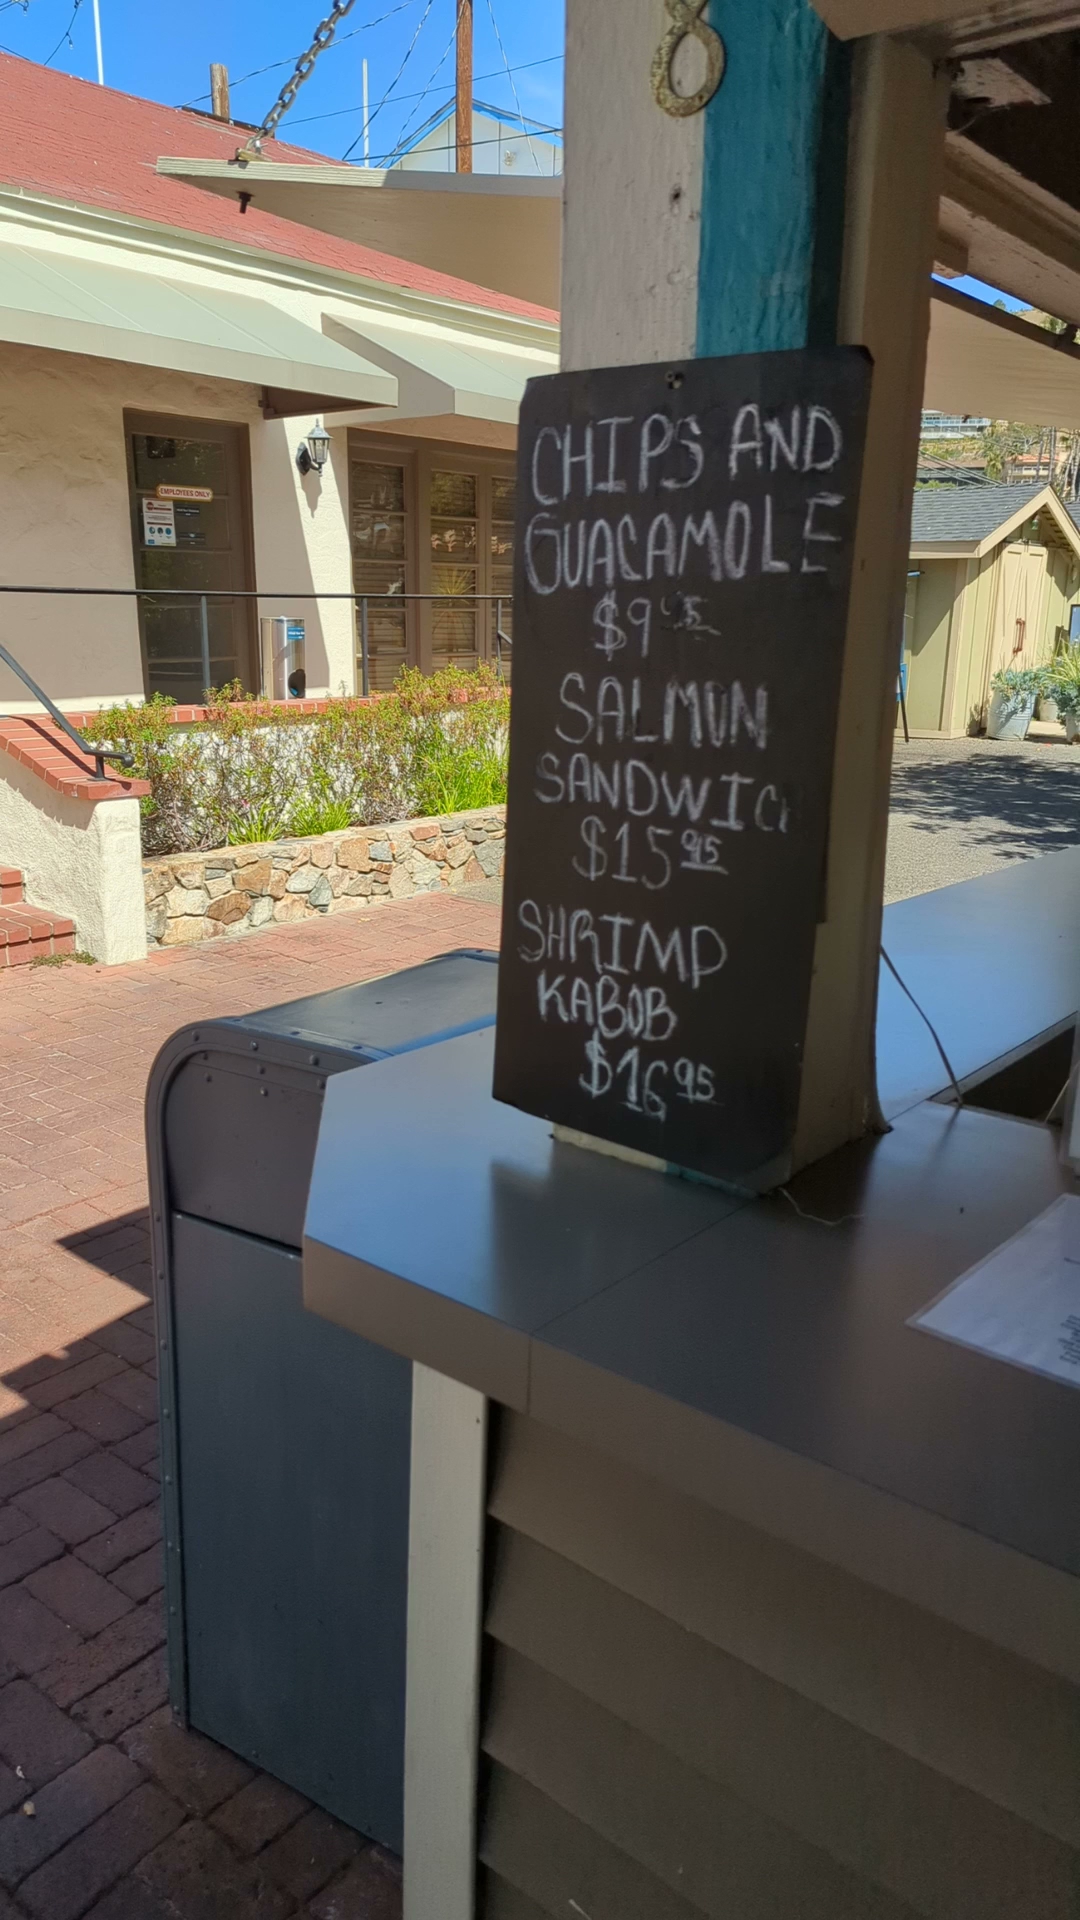 EMPLOYEES ONLY
CHIPS AND
GUACAMOLE
$9 95
SALMON
SANDWICH
$15 95
SHRIMP
KABOB
$16 95